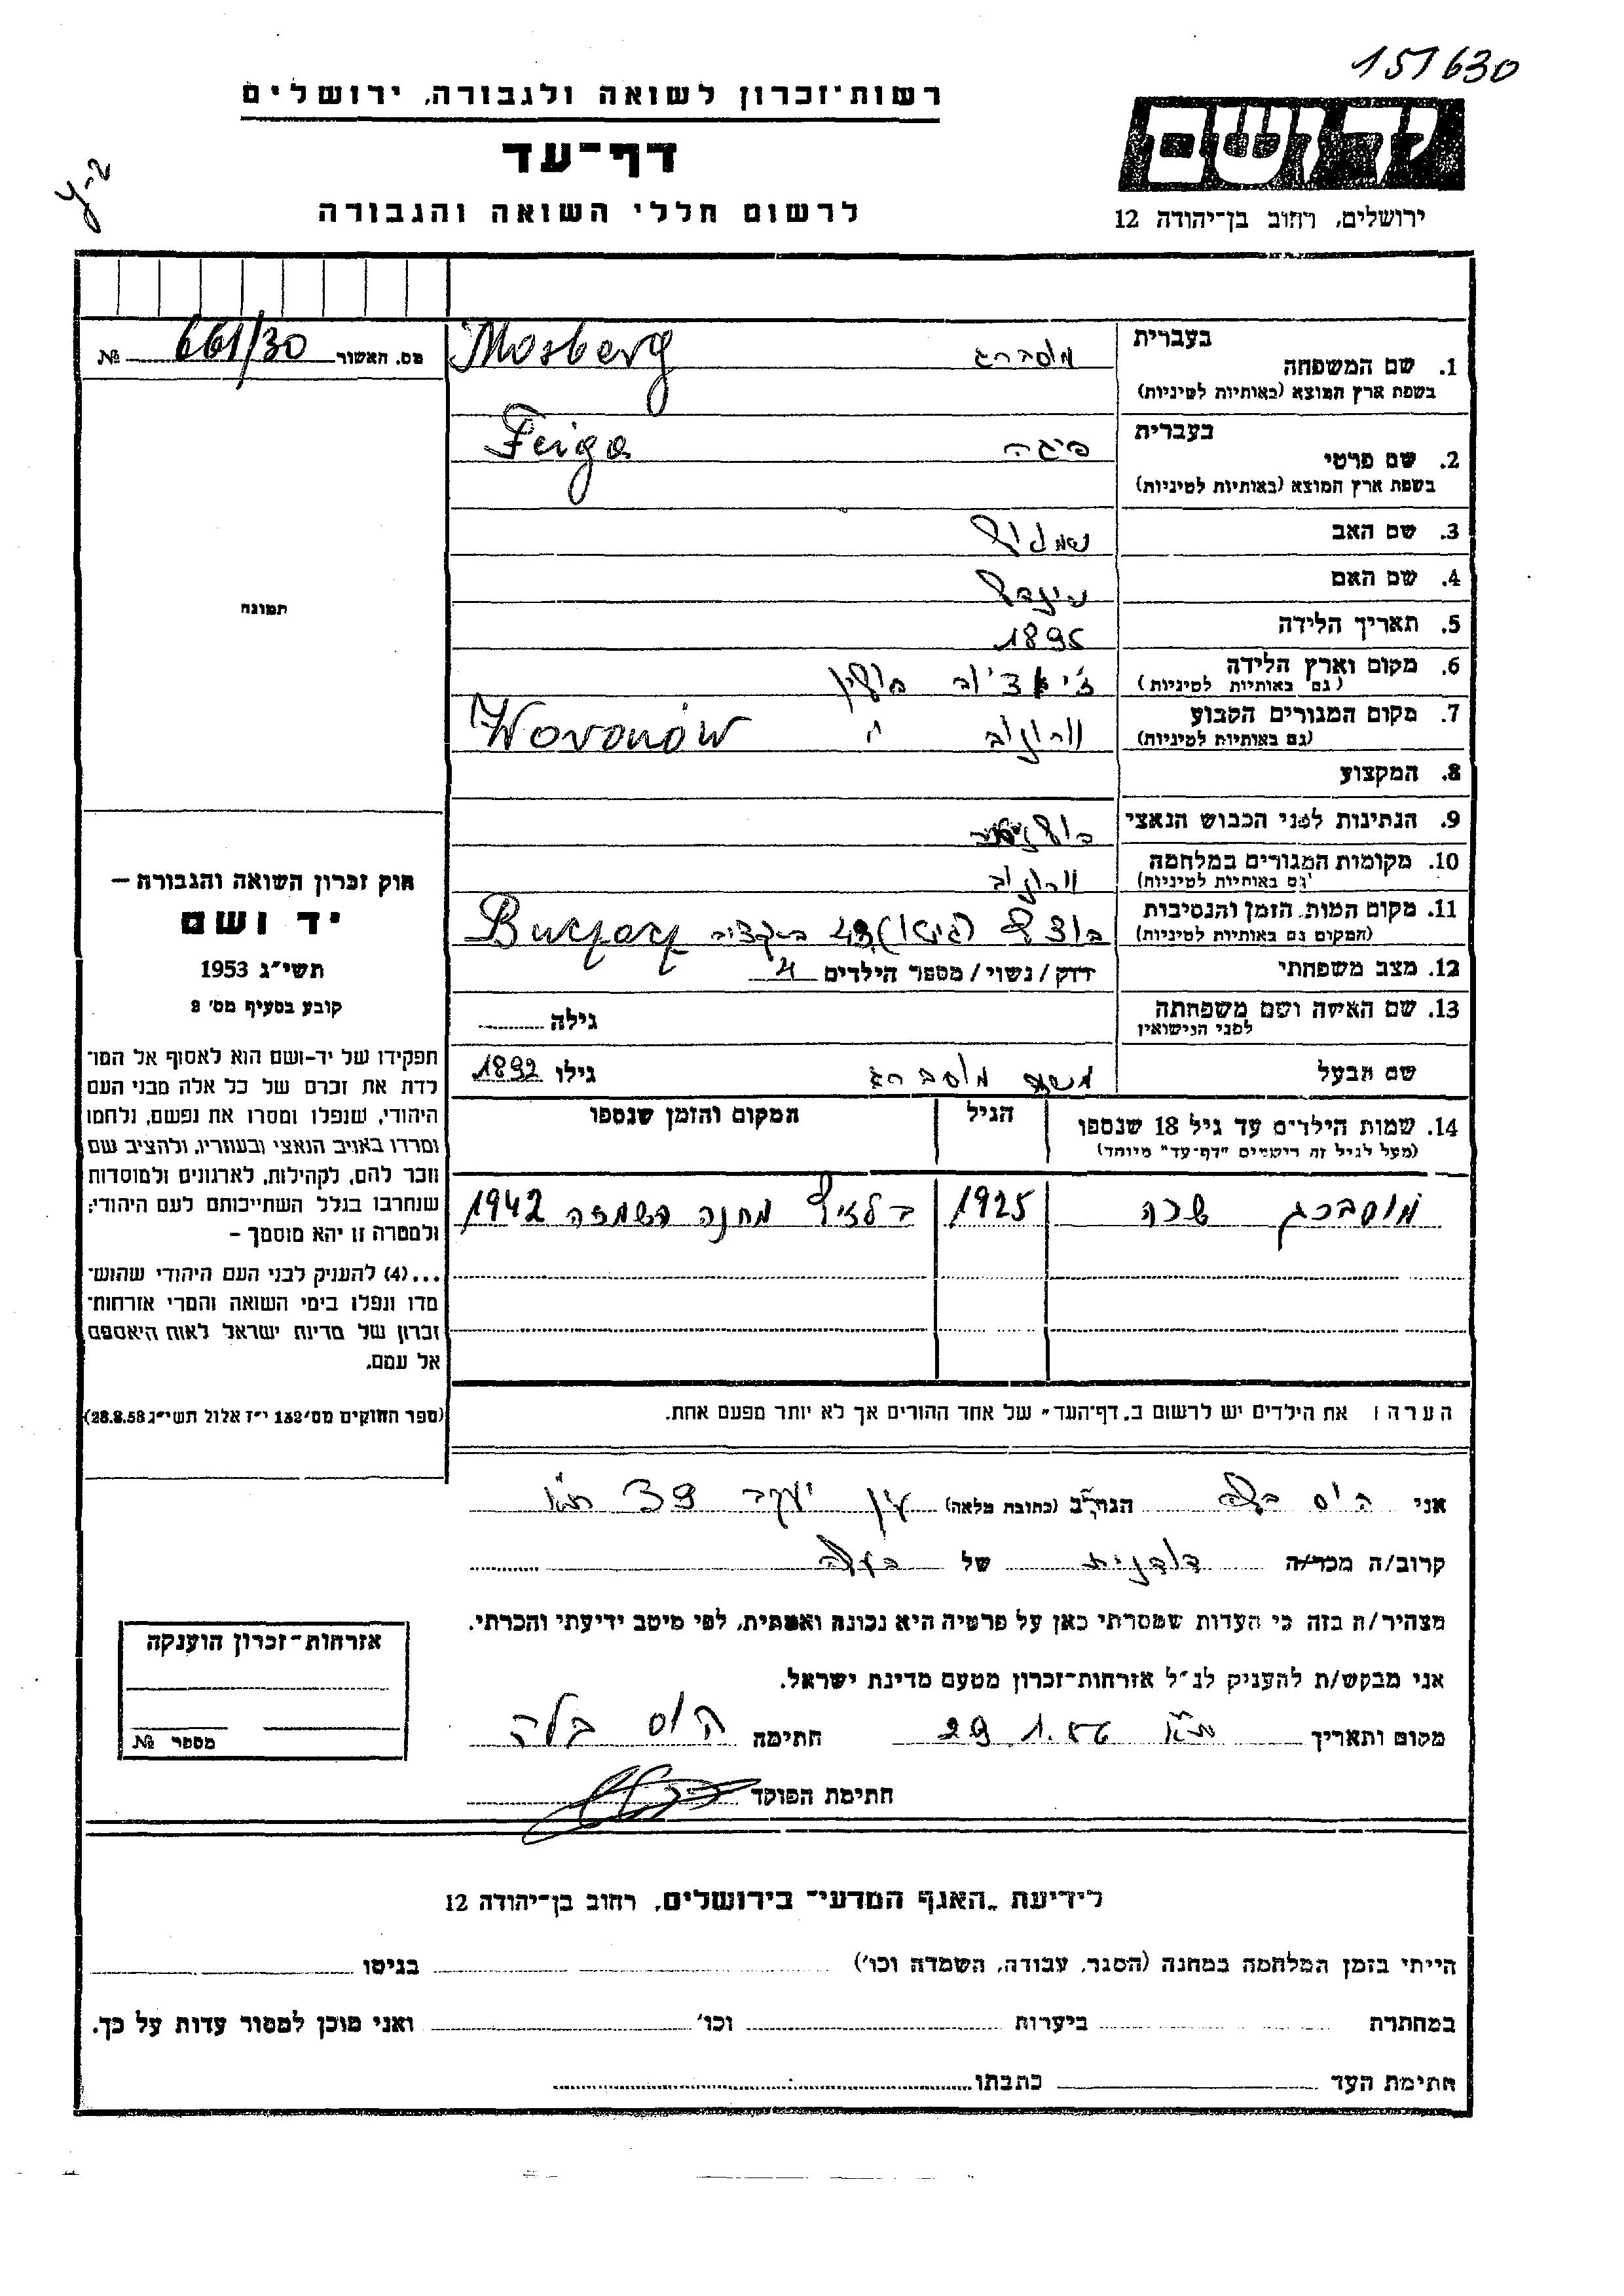 151630
רשות־זכרון לשואה ולגבורה, ירושלים
דף־עד
לרשום חללי השואה והגבורה
יד ושם
ירושלים, רחוב בן־יהודה 12
מס. האשור 661/30 №
בעברית
1. שם המשפחה מוסברג Mosberg
בשפת ארץ המוצא (באותיות לטיניות)
בעברית
2. שם פרטי פיגה Feiga
בשפת ארץ המוצא (באותיות לטיניות)
3. שם האב
4. שם האם
5. תאריך הלידה 1895
6. מקום וארץ הלידה פולין
(גם באותיות לטיניות)
7. מקום המגורים הקבוע וורונוב Woronów
(גם באותיות לטיניות)
8. המקצוע
9. הנתינות לפני הכבוש הנאצי
10. מקומות המגורים במלחמה וורונוב
(גם באותיות לטיניות)
11. מקום המות, הזמן והנסיבות Buczacz
(המקום גם באותיות לטיניות)
12. מצב משפחתי רווק/נשוי/מספר הילדים 4
13. שם האישה ושם משפחתה גילה
לפני הנישואין
שם הבעל משה מוסברג גילו 1892
14. שמות הילדים עד גיל 18 שנספו הגיל המקום והזמן שנספו
(מעל לגיל זה רישמים "דף־עד" מיוחד)
מוסברג שרה 1925 בלזץ מחנה השמדה 1942
הערה: את הילדים יש לרשום ב„דף־העד" של אחד ההורים אך לא יותר מפעם אחת.
תמונה
חוק זכרון השואה והגבורה –
יד ושם
תשי"ג 1953
קובע בסעיף מס' 2
תפקידו של יד-ושם הוא לאסוף אל המו־
לדת את זכרם של כל אלה מבני העם
היהודי, שנפלו ומסרו את נפשם, נלחמו
ומרדו באויב הנאצי ובעוזריו, ולהציב שם
וזכר להם, לקהילות, לארגונים ולמוסדות
שנחרבו בגלל השתייכותם לעם היהודי;
ולמטרה זו יהא מוסמך –
...(4) להעניק לבני העם היהודי שהוש־
מדו ונפלו בימי השואה והמרי אזרחות־
זכרון של מדינת ישראל לאות היאספם
אל עמם.
(ספר החוקים מס' 132 י"ז אלול תשי"ג 28.8.53)
אני הוס בלה הגר/ה ב (כתובת מלאה) עין יעקב 39 ת"א
קרוב/ה מכר/ה של
מצהיר/ה בזה כי העדות שמסרתי כאן על פרטיה היא נכונה ואמתית, לפי מיטב ידיעתי והכרתי.
אני מבקש/ת להעניק לנ"ל אזרחות־זכרון מטעם מדינת ישראל.
מקום ותאריך ת"א 29.1.56 חתימה הוס בלה
חתימת הפוקד
אזרחות־זכרון הוענקה
מספר №
לידיעת „האגף המדעי" בירושלים, רחוב בן־יהודה 12
הייתי בזמן המלחמה במחנה (הסגר, עבודה, השמדה וכו') בגיטו
במחתרת ביערות וכו' ואני מוכן למסור עדות על כך.
חתימת העד כתבתו